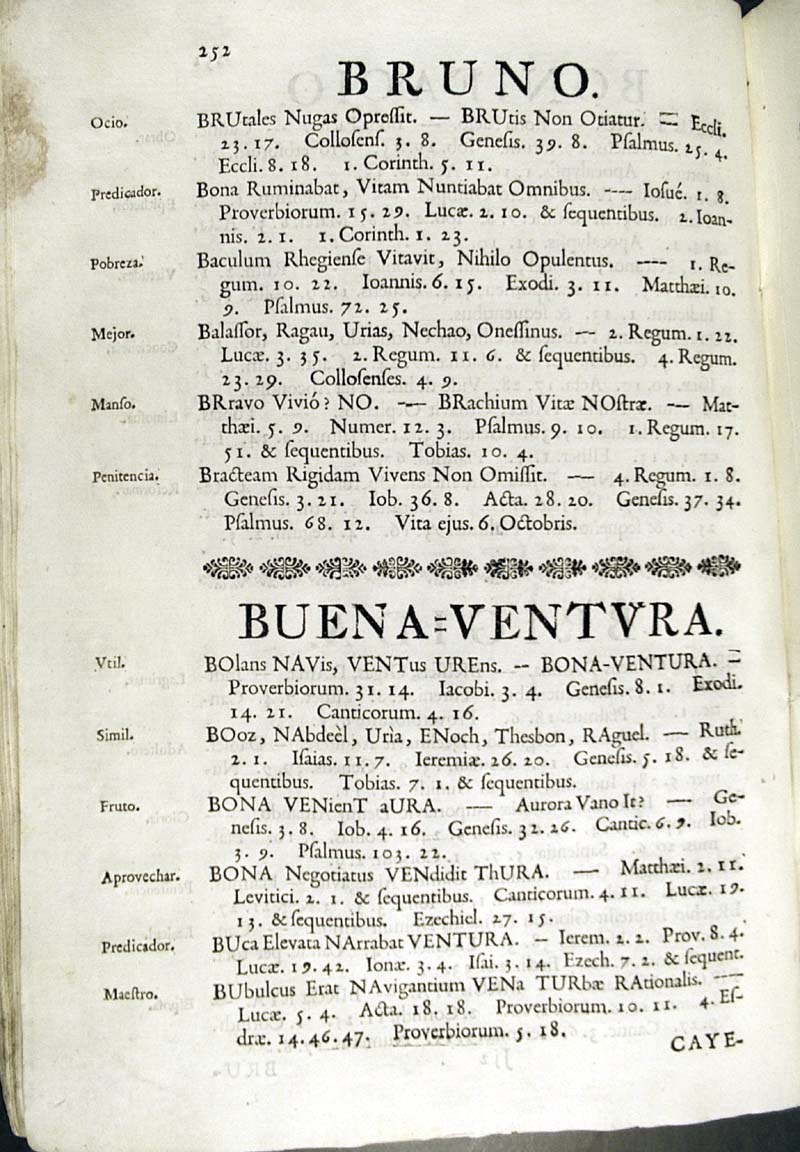 252
BRUNO.
Ocio. BRUtales Nugas Opreſſit. — BRUtis Non Otiatur. = Eccli.
23. 17. Colloſenſ. 3. 8. Geneſis. 39. 8. Pſalmus. 25. 4.
Eccli. 8. 18. 1. Corinth. 5. 11.
Predicador. Bona Ruminabat, Vitam Nuntiabat Omnibus. ---- Ioſué. 1. 8.
Proverbiorum. 15. 29. Lucæ. 2. 10. & ſequentibus. 2. Ioan-
nis. 2. 1. 1. Corinth. 1. 23.
Pobreza. Baculum Rhegienſe Vitavit, Nihilo Opulentus. ---- 1. Re-
gum. 10. 22. Ioannis. 6. 15. Exodi. 3. 11. Matthæi. 10.
9. Pſalmus. 72. 25.
Mejor. Balaſſor, Ragau, Urias, Nechao, Oneſſinus. — 2. Regum. 1. 22.
Lucæ. 3. 35. 2. Regum. 11. 6. & ſequentibus. 4. Regum.
23. 29. Colloſenſes. 4. 9.
Manſo. BRravo Vivió? NO. --- BRachium Vitæ NOſtræ. — Mat-
thæi. 5. 9. Numer. 12. 3. Pſalmus. 9. 10. 1. Regum. 17.
51. & ſequentibus. Tobias. 10. 4.
Penitencia. Bracteam Rigidam Vivens Non Omiſſit. --- 4. Regum. 1. 8.
Geneſis. 3. 21. Iob. 36. 8. Acta. 28. 20. Geneſis. 37. 34.
Pſalmus. 68. 12. Vita ejus. 6. Octobris.
BUENA=VENTVRA.
Vtil. BOlans NAVis, VENTus UREns. -- BONA-VENTURA. =
Proverbiorum. 31. 14. Iacobi. 3. 4. Geneſis. 8. 1. Exodi.
14. 21. Canticorum. 4. 16.
Simil. BOoz, NAbdeèl, Urìa, ENoch, Thesbon, RAguel. — Ruth.
2. 1. Iſaias. 11. 7. Ieremiæ. 26. 20. Geneſis. 5. 18. & ſe-
quentibus. Tobias. 7. 1. & ſequentibus.
Fruto. BONA VENienT aURA. --- Aurora Vano It? — Ge-
neſis. 3. 8. Iob. 4. 16. Geneſis. 32. 26. Cantic. 6. 9. Iob.
3. 9. Pſalmus. 103. 22.
Aprovechar. BONA Negotiatus VENdidit ThURA. — Matthæi. 2. 11.
Levitici. 2. 1. & ſequentibus. Canticorum. 4. 11. Lucæ. 19.
13. & ſequentibus. Ezechiel. 27. 15.
Predicador. BUca Elevata NArrabat VENTURA. — Ierem. 2. 2. Prov. 8. 4.
Lucæ. 19. 42. Ionæ. 3. 4. Iſai. 3. 14. Ezech. 7. 2. & ſequent.
Maeſtro. BUbulcus Erat NAvigantium VENa TURbæ RAtionalis. ----
Lucæ. 5. 4. Acta. 18. 18. Proverbiorum. 10. 11. 4. Eſ-
dræ. 14. 46. 47. Proverbiorum. 5. 18.
CAYE-